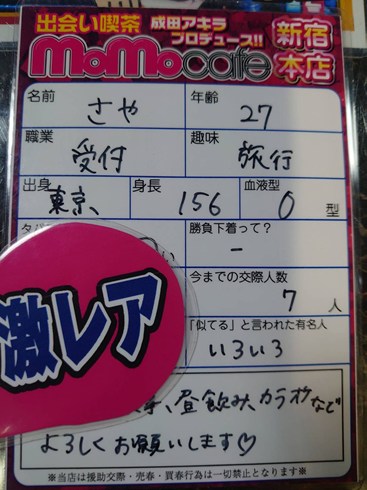 出会い喫茶 成田アキラ
プロデュース!!
MoMocafe 新宿本店
名前 さや 年齢 27
職業 受付 趣味 旅行
出身 東京、 身長 156 血液型 O 型
タバ い 勝負下着って? ー
今までの交際人数 7 人
激レア
「似てる」と言われた有名人 いろいろ
、昼飲み、カラオケなど
よろしくお願いします♡
※当店は援助交際・売春・買春行為は一切禁止となります※